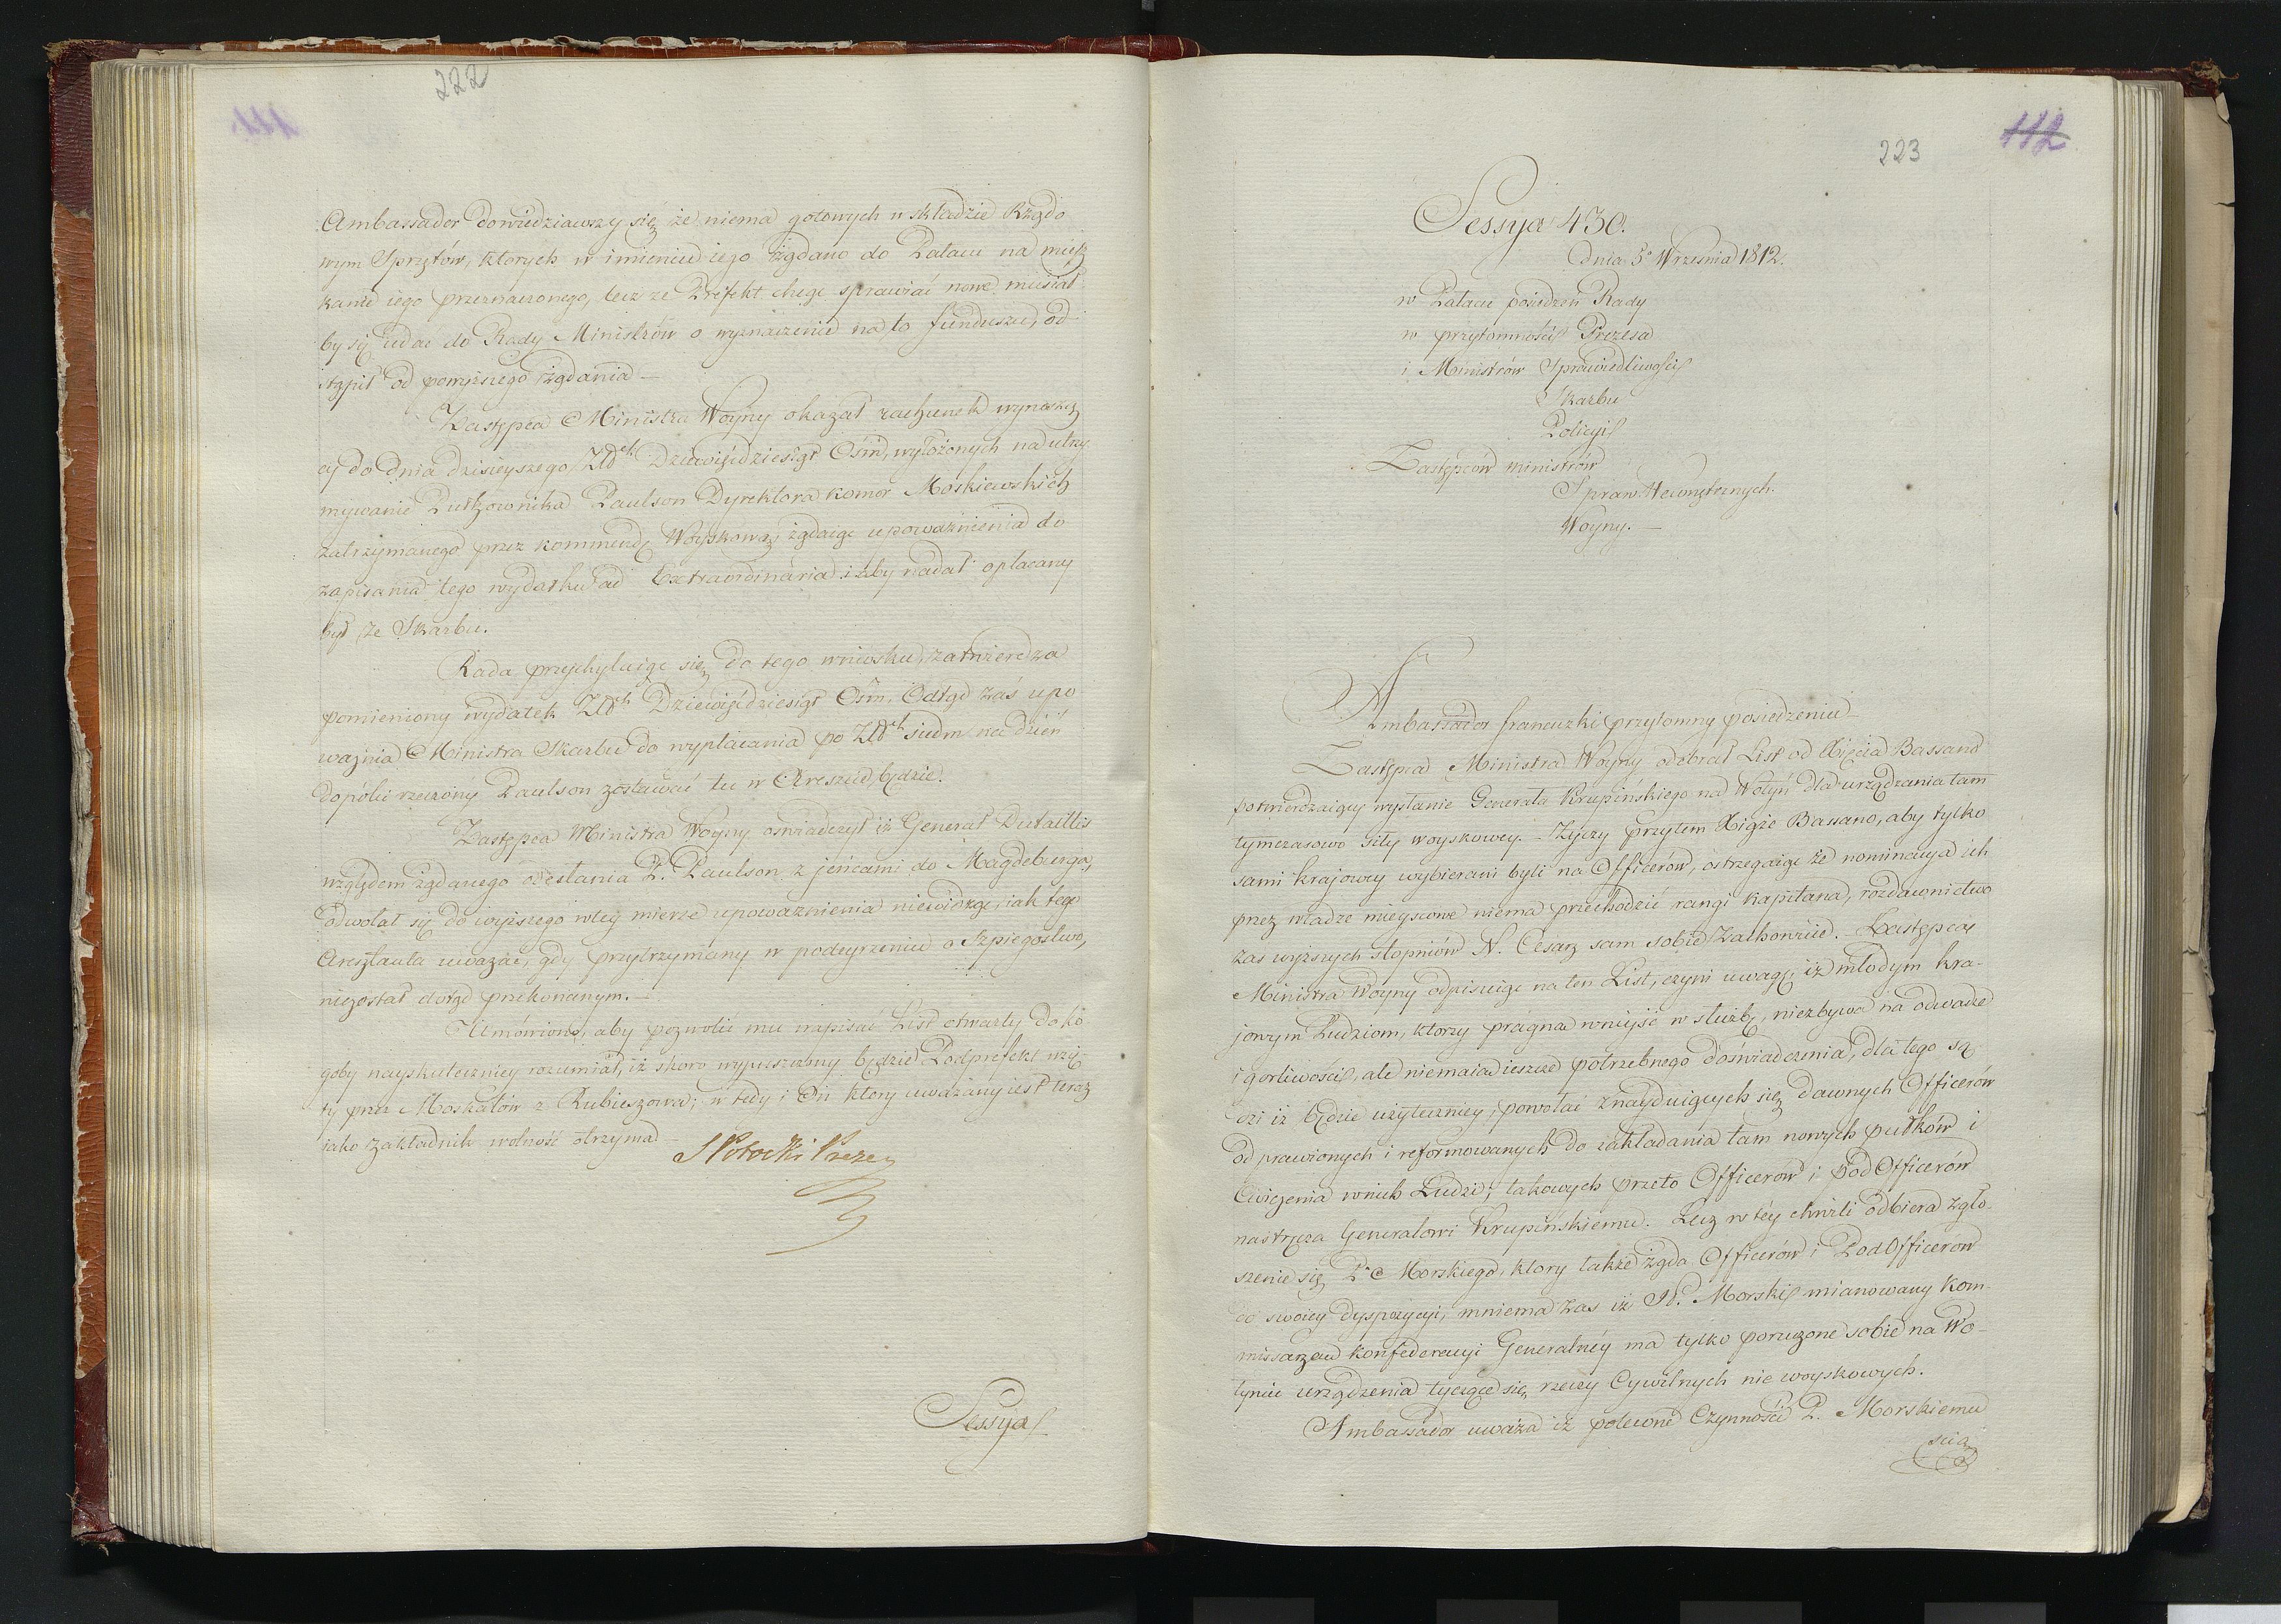 222
Ambassador dowiedziawszy się że niema gotowych w składzie Rządo
wym Sprzętów, ktorych w imieniu iego żądano do Pałacu na miesz
kanie iego przeznaczonego, lecz ze Prefekt chcąc sprawiać nowe musiał
by się udać do Rady Ministrów o wyznaczenie na to funduszu, od
stąpił od powyższego żądania —
Zastępca Ministra Woyny okazał rachunek wynoszą
cy do dnia dzisieyszego Złtch Dziewięćdziesiąt Ośm, wyłożonych na utrzy
mywanie Pułkownika Paulson Dyrektora komor Moskiewskich
zatrzymanego przez kommendę Woyskową żądaiąc upoważnienia do
zapisania tego wydatku ad Extraordinaria i aby nadal opłacany
był ze Skarbu.
Rada przychylaiąc się do tego wniosku, zatwierdza
pomieniony wydatek Złtch Dziewięćdziesiąt Ośm, Odtąd zaś upo
ważnia Ministra Skarbu do wypłacania po Złtch siedm na dzień
dopóki rzeczony Paulson zostawać tu w Areszcie będzie.
Zastępca Ministra Woyny oświadczył iż Generał Dutaillis
względem żądanego odesłania P. Paulson z jeńcami do Magdeburga,
odwołał się do wyższego w tey mierze upoważnienia niewidząc, iak tego
Aresztanta uważać, gdy przytrzymany w podeyrzeniu o Szpiegostwo,
niezostał dotąd przekonanym. —
Umówiono, aby pozwolić mu napisać List otwarty do ko
goby nayskuteczniey rozumiał, iż skoro wypuszczony będzie Podprefekt wzię
ty przez Moskalów z Rubieszowa; w tedy i On ktory uważany iest teraz
iako zakładnik wolność otrzyma —
S Potocki Prezes
Sessya
112
223
Sessya 430.
dnia 5o Września 1812.
w Pałacu posiedzeń Rady
w przytomności Prezesa
i Ministrów Sprawiedliwości
Skarbu
Policyi
Zastępców ministrów
Spraw Wewnętrznych.
Woyny. —
Ambassador francuzki przytomny posiedzeniu —
Zastępca Ministra Woyny odebrał List od Xięcia Bassano
potwierdzaiący wysłanie Generała Krupińskiego na Wołyń dla urządzania tam
tymczasowo siły woyskowey. — Życzy przytem Xiąże Bassano, aby tylko
sami krajowcy wybierani byli na Officerów, ostrzegaiąc że nominacya ich
przez władze mieyscowe niema przechodzić rangi Kapitana, rozdawnictwo
zas wyższych stopniów N. Cesarz sam sobie Zachowuie. — Zastępca
Ministra Woyny odpisuiąc na ten List, czyni uwagę, iż młodym kra-
jowym Ludziom, ktorzy pragną wniyść w służbę, niezbywa na odwadze
i gorliwości, ale niemaia ieszcze potrzebnego doświadczenia, dla tego są
dzi iż będzie użyteczniey, powołać znayduiących się dawnych Officerów
odprawionych i reformowanych do zakładania tam nowych pułków i
Ćwiczenia w nich Ludzi; takowych przeto Officerów i PodOfficerów
nastręcza Generałowi Krupińskiemu. Lecz w téy chwili odbiera zgło-
szenie się P. Morskiego, ktory także żąda Officerów i PodOfficerów
do swoiey dyspozycyi, mniema zas iż P. Morski mianowany Kom-
missarzem Konfederacyi Generalnéy ma tylko poruczone sobie na Wo-
łyniu urządzenia tyczące się rzeczy Cywilnych nie woyskowych.
Ambassador uważa iż polecone Czynności P. Morskiemu